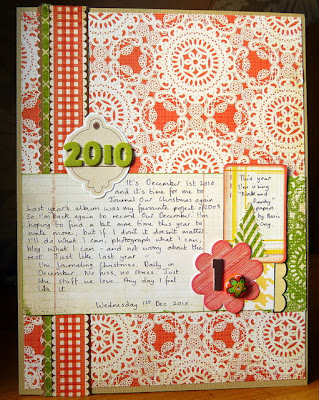 2010
It's December 1st 2010
and it's time for me to
Journal Our Christmas again
Last year's album was my favourite project of 2009
So I'm back again to record Our December. I'm
hoping to find a bit more time this year to
write more, but if I don't it doesn't matter.
I'll do what I can, photograph what I can,
blog what I can - and not worry about the
rest. Just like last year
I'm journaling Christmas. Daily in
December. No fuss, no stress. Just
the stuff we love. Any day I feel
like it
Wednesday 1st Dec 2010
This year
I'm using
"Nook and
Pantry"
papers
by Basic
Grey.
1